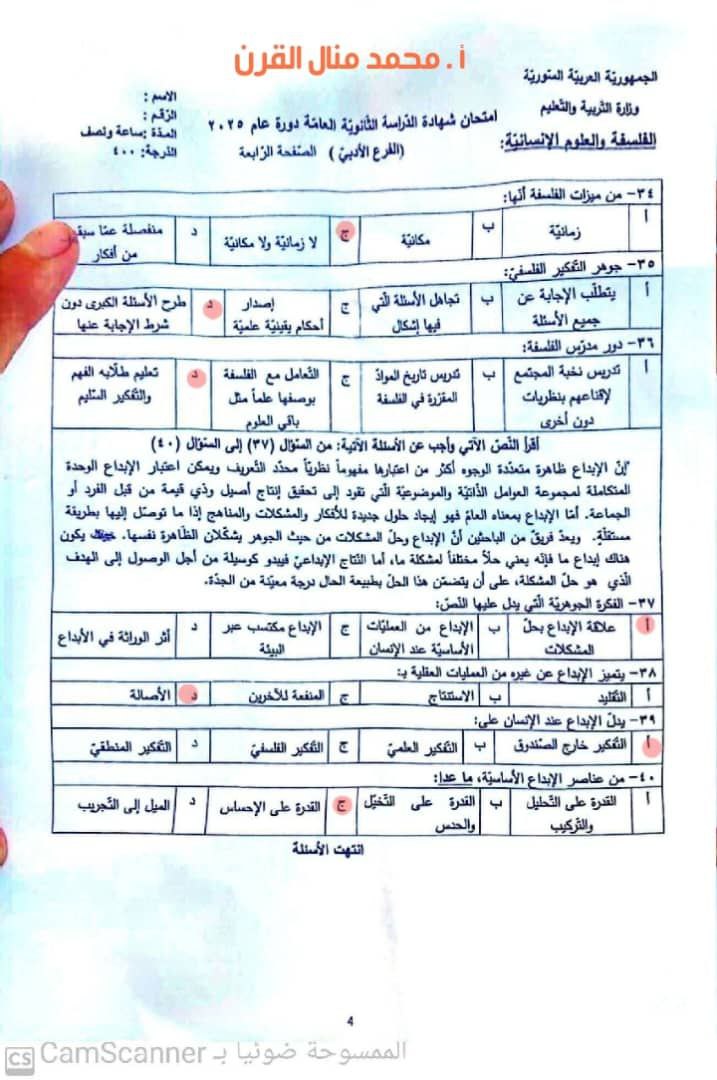 أ. محمد منال القرن
الجمهوريّة العربيّة السّوريّة
وزارة التّربية والتّعليم
الفلسفة والعلوم الإنسانيّة:
امتحان شهادة الدّراسة الثّانويّة العامّة دورة عام ٢٠٢٥
(الفرع الأدبيّ) الصّفحة الرّابعة
الاسم :
الرّقم :
المدّة: ساعة ونصف
الدّرجة: ٤٠٠
٣٤- من ميزات الفلسفة أنّها:
أ زمانيّة ب مكانيّة ج لا زمانيّة ولا مكانيّة د منفصلة عمّا
من أفكار
٣٥- جوهر التّفكير الفلسفيّ:
أ يتطلّب الإجابة عن ب تجاهل الأسئلة الّتي ج إصدار د طرح الأسئلة الكبرى دون
جميع الأسئلة فيها إشكال أحكام يقينيّة علميّة شرط الإجابة عنها
٣٦- دور مدرّس الفلسفة:
أ تدريس نخبة المجتمع ب تدريس تاريخ الموادّ ج التّعامل مع الفلسفة د تعليم طلّابه الفهم
لإقناعهم بنظريات المقرّرة في الفلسفة بوصفها علماً مثل والتّفكير السّليم
دون أخرى باقي العلوم
أقرأ النّصّ الآتي وأجب عن الأسئلة الآتية: من السّؤال (٣٧) إلى السّؤال (٤٠)
"إنّ الإبداع ظاهرة متعدّدة الوجوه أكثر من اعتبارها مفهوماً نظريّاً محدّد التّعريف ويمكن اعتبار الإبداع الوحدة
المتكاملة لمجموعة العوامل الذّاتيّة والموضوعيّة الّتي تقود إلى تحقيق إنتاج أصيل وذي قيمة من قبل الفرد أو
الجماعة. أمّا الإبداع بمعناه العامّ فهو إيجاد حلول جديدة للأفكار والمشكلات والمناهج إذا ما توصّل إليها بطريقة
مستقلّةٍ. ويعدّ فريقٌ من الباحثين أنّ الإبداع وحلّ المشكلات من حيث الجوهر يشكّلان الظّاهرة نفسها. يكون
هناك إبداع ما فإنّه يعني حلاً مختلفاً لمشكلة ما، أما النّتاج الإبداعيّ فيبدو كوسيلة من أجل الوصول إلى الهدف
الّذي هو حلّ المشكلة، على أن يتضمّن هذا الحلّ بطبيعة الحال درجة معيّنة من الجدّة.
٣٧- الفكرة الجوهريّة الّتي يدل عليها النّصّ:
أ علاقة الإبداع بحلّ ب الإبداع من العمليّات ج الإبداع مكتسب عبر د أثر الوراثة في الأبداع
المشكلات الأساسيّة عند الإنسان البيئة
٣٨- يتميز الإبداع عن غيره من العمليات العقلية بـ:
أ التّقليد ب الاستنتاج ج المنفعة للآخرين د الأصالة
٣٩- يدلّ الإبداع عند الإنسان على:
أ التّفكير خارج الصّندوق ب التّفكير العلميّ ج التّفكير الفلسفيّ د التّفكير المنطقيّ
٤٠- من عناصر الإبداع الأساسيّة، ما عدا:
أ القدرة على التّحليل ب القدرة على التّخيّل ج القدرة على الإحساس د الميل إلى التّجريب
والتّركيب والحدس
انتهت الأسئلة
4
الممسوحة ضوئيا بـ CamScanner
CS